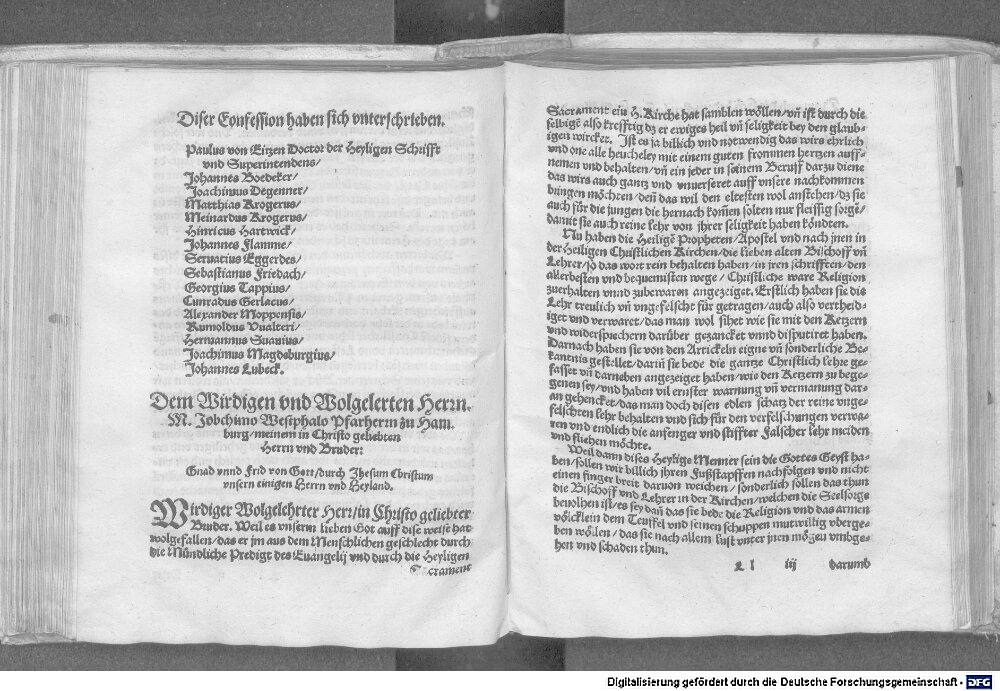 Diser Confession haben sich vnterschrieben.
Paulus von Eitzen Doctor der Heyligen Schrifft
vnd Superintendens/
Johannes Boedeker/
Joachimus Degenner/
Matthias Krogerus/
Meinardus Krogerus/
Hinricus Hartwick/
Johannes Flamme/
Seruatius Eggerdes/
Sebastianus Friedach/
Georgius Tappius/
Cunradus Gerlacus/
Alexander Moppensis/
Rumoldus Vualteri/
Hermannus Suauius/
Joachimus Magdeburgius/
Johannes Lubeck.
Dem Wirdigen vnd Wolgelerten Herrn.
M. Jobchimo Westphalo Pfarherrn zu Ham
burg/meinem in Christo geliebten
Herrn vnd Bruder:
Gnad vnnd Frid von Gott/durch Jhesum Christum
vnsern einigen Herrn vnd Heyland.
Wirdiger Wolgelehrter Herr/in Christo geliebter
Bruder. Weil es vnserm lieben Got auff dise weise hat
wolgefallen/das er jm aus dem Menschlichen geschlecht durch
die Mündliche Predigt des Euangelij vnd durch die Heyligen
Sacrament
Sacrament ein H. Kirche hat samblen wöllen/vñ ist durch die
selbigē also krefftig dz er ewiges heil vñ seligkeit bey den glaub-
igen wircket. Ist es ja billich vnd notwendig das wirs ehrlich
vnd one alle heucheley mit einem guten frommen hertzen auff-
nemen vnd behalten/vñ ein jeder in seinem Beruff darzu diene
das wirs auch gantz vnd vnuerseret auff vnsere nachkommen
bringen möchten/deñ das wil den eltesten wol anstehen/dz sie
auch für die jungen die hernach kom̃en solten nur fleissig sorgē/
damit sie auch reine lehr von jhrer seligkeit haben köndten.
Nu haben die Heiligē Propheten/Apostel vnd nach jnen in
der Heiligen Christlichen Kirchen/die lieben alten Bischoff vñ
Lehrer/so das wort rein behalten haben/in jren schrifften/den
allerbesten vnd bequemisten wege/Christliche ware Religion
zuerhalten vnnd zubewaren angezeiget. Erstlich haben sie die
Lehr treulich vñ vngefelscht für getragen/auch also vertheid-
iget vnd verwaret/das man wol sihet wie sie mit den Ketzern
vnd widersprechern darüber gezancket vnnd disputiret haben.
Darnach haben sie von den Artickeln eigne vñ sönderliche Be-
kantnis gestellet/dariñ sie bede die gantze Christlich lehre ge-
fasset vñ darneben angezeiget haben/wie den Ketzern zu bege-
genen sey/vnd haben vil ernster warnung vñ vermanung dar-
an gehencket/das man doch disen edlen schatz der reine vnge-
felschten lehr behalten vnd sich für den verfelschungen verwa-
ren vnd endlich die anfenger vnd stiffter Falscher lehr meiden
vnd fliehen möchte.
Weil dann dises Heylige Menner sein die Gottes Geyst ha-
ben/sollen wir billich jhren Fußstapffen nachfolgen vnd nicht
einen finger breit daruon weichen/sönderlich sollen das thun
die Bischoff vnd Lehrer in der Kirchen/welchen die Seelsorge
beuolhen ist/es sey dañ das sie bede die Religion vnd das armen
völcklein dem Teuffel vnd seinen schuppen mutwillig vberge-
ben wöllen/das sie nach allem lust vnter jnen mögen vmbge-
hen vnd schaden thun.
L l iij darumb
Digitalisierung gefördert durch die Deutsche Forschungsgemeinschaft - DFG